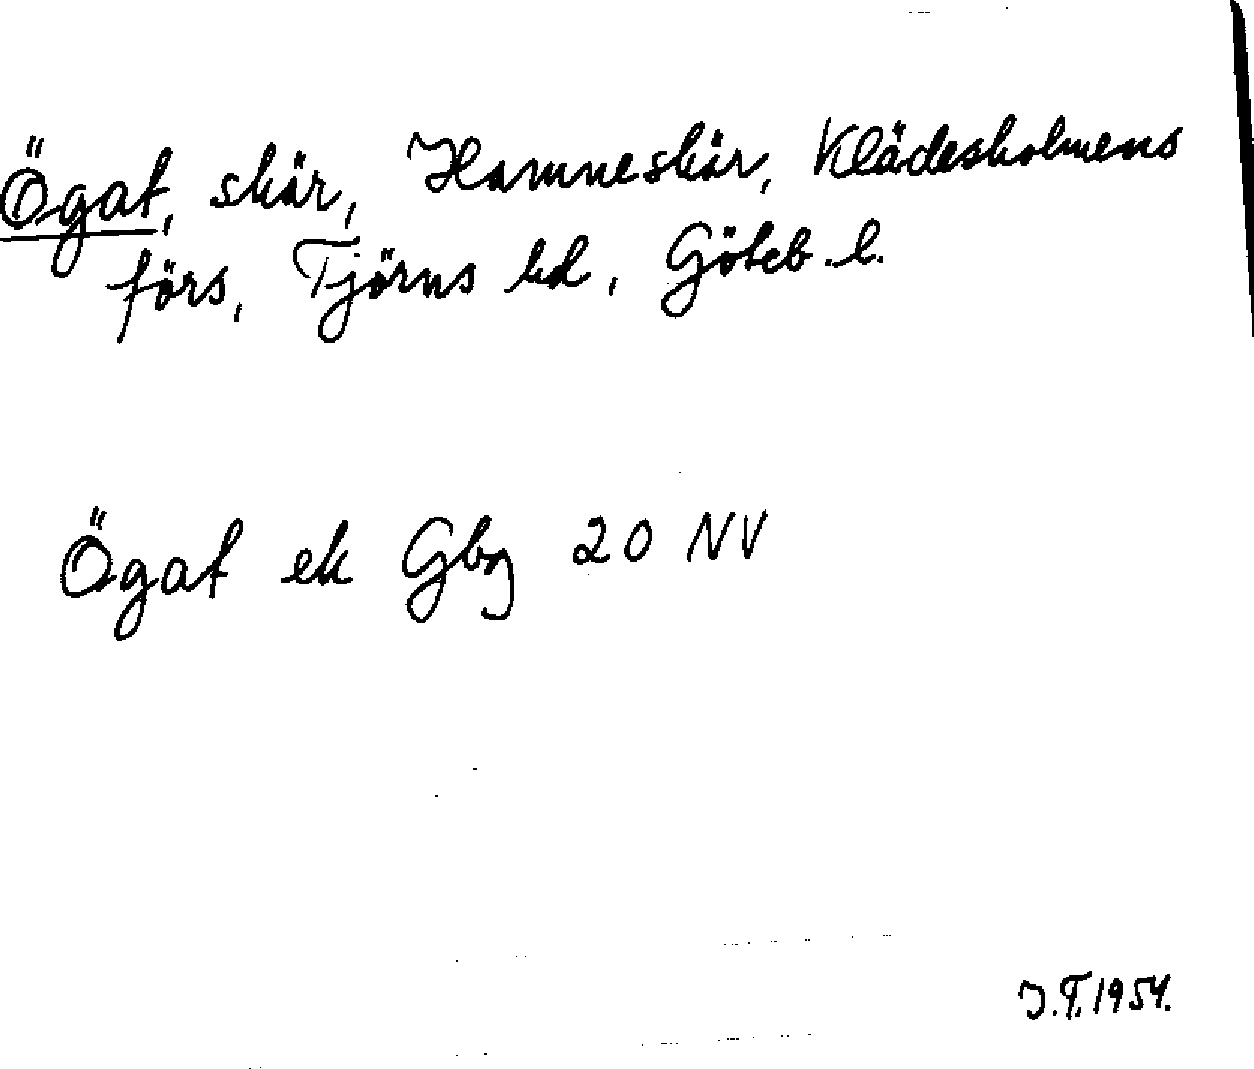 Ögat, skär, Hamneskär, Klädesholmens
förs, Tjörns hd, Göteb. l.
Ögat ek Gbg 20 NV
J.T. 1954.